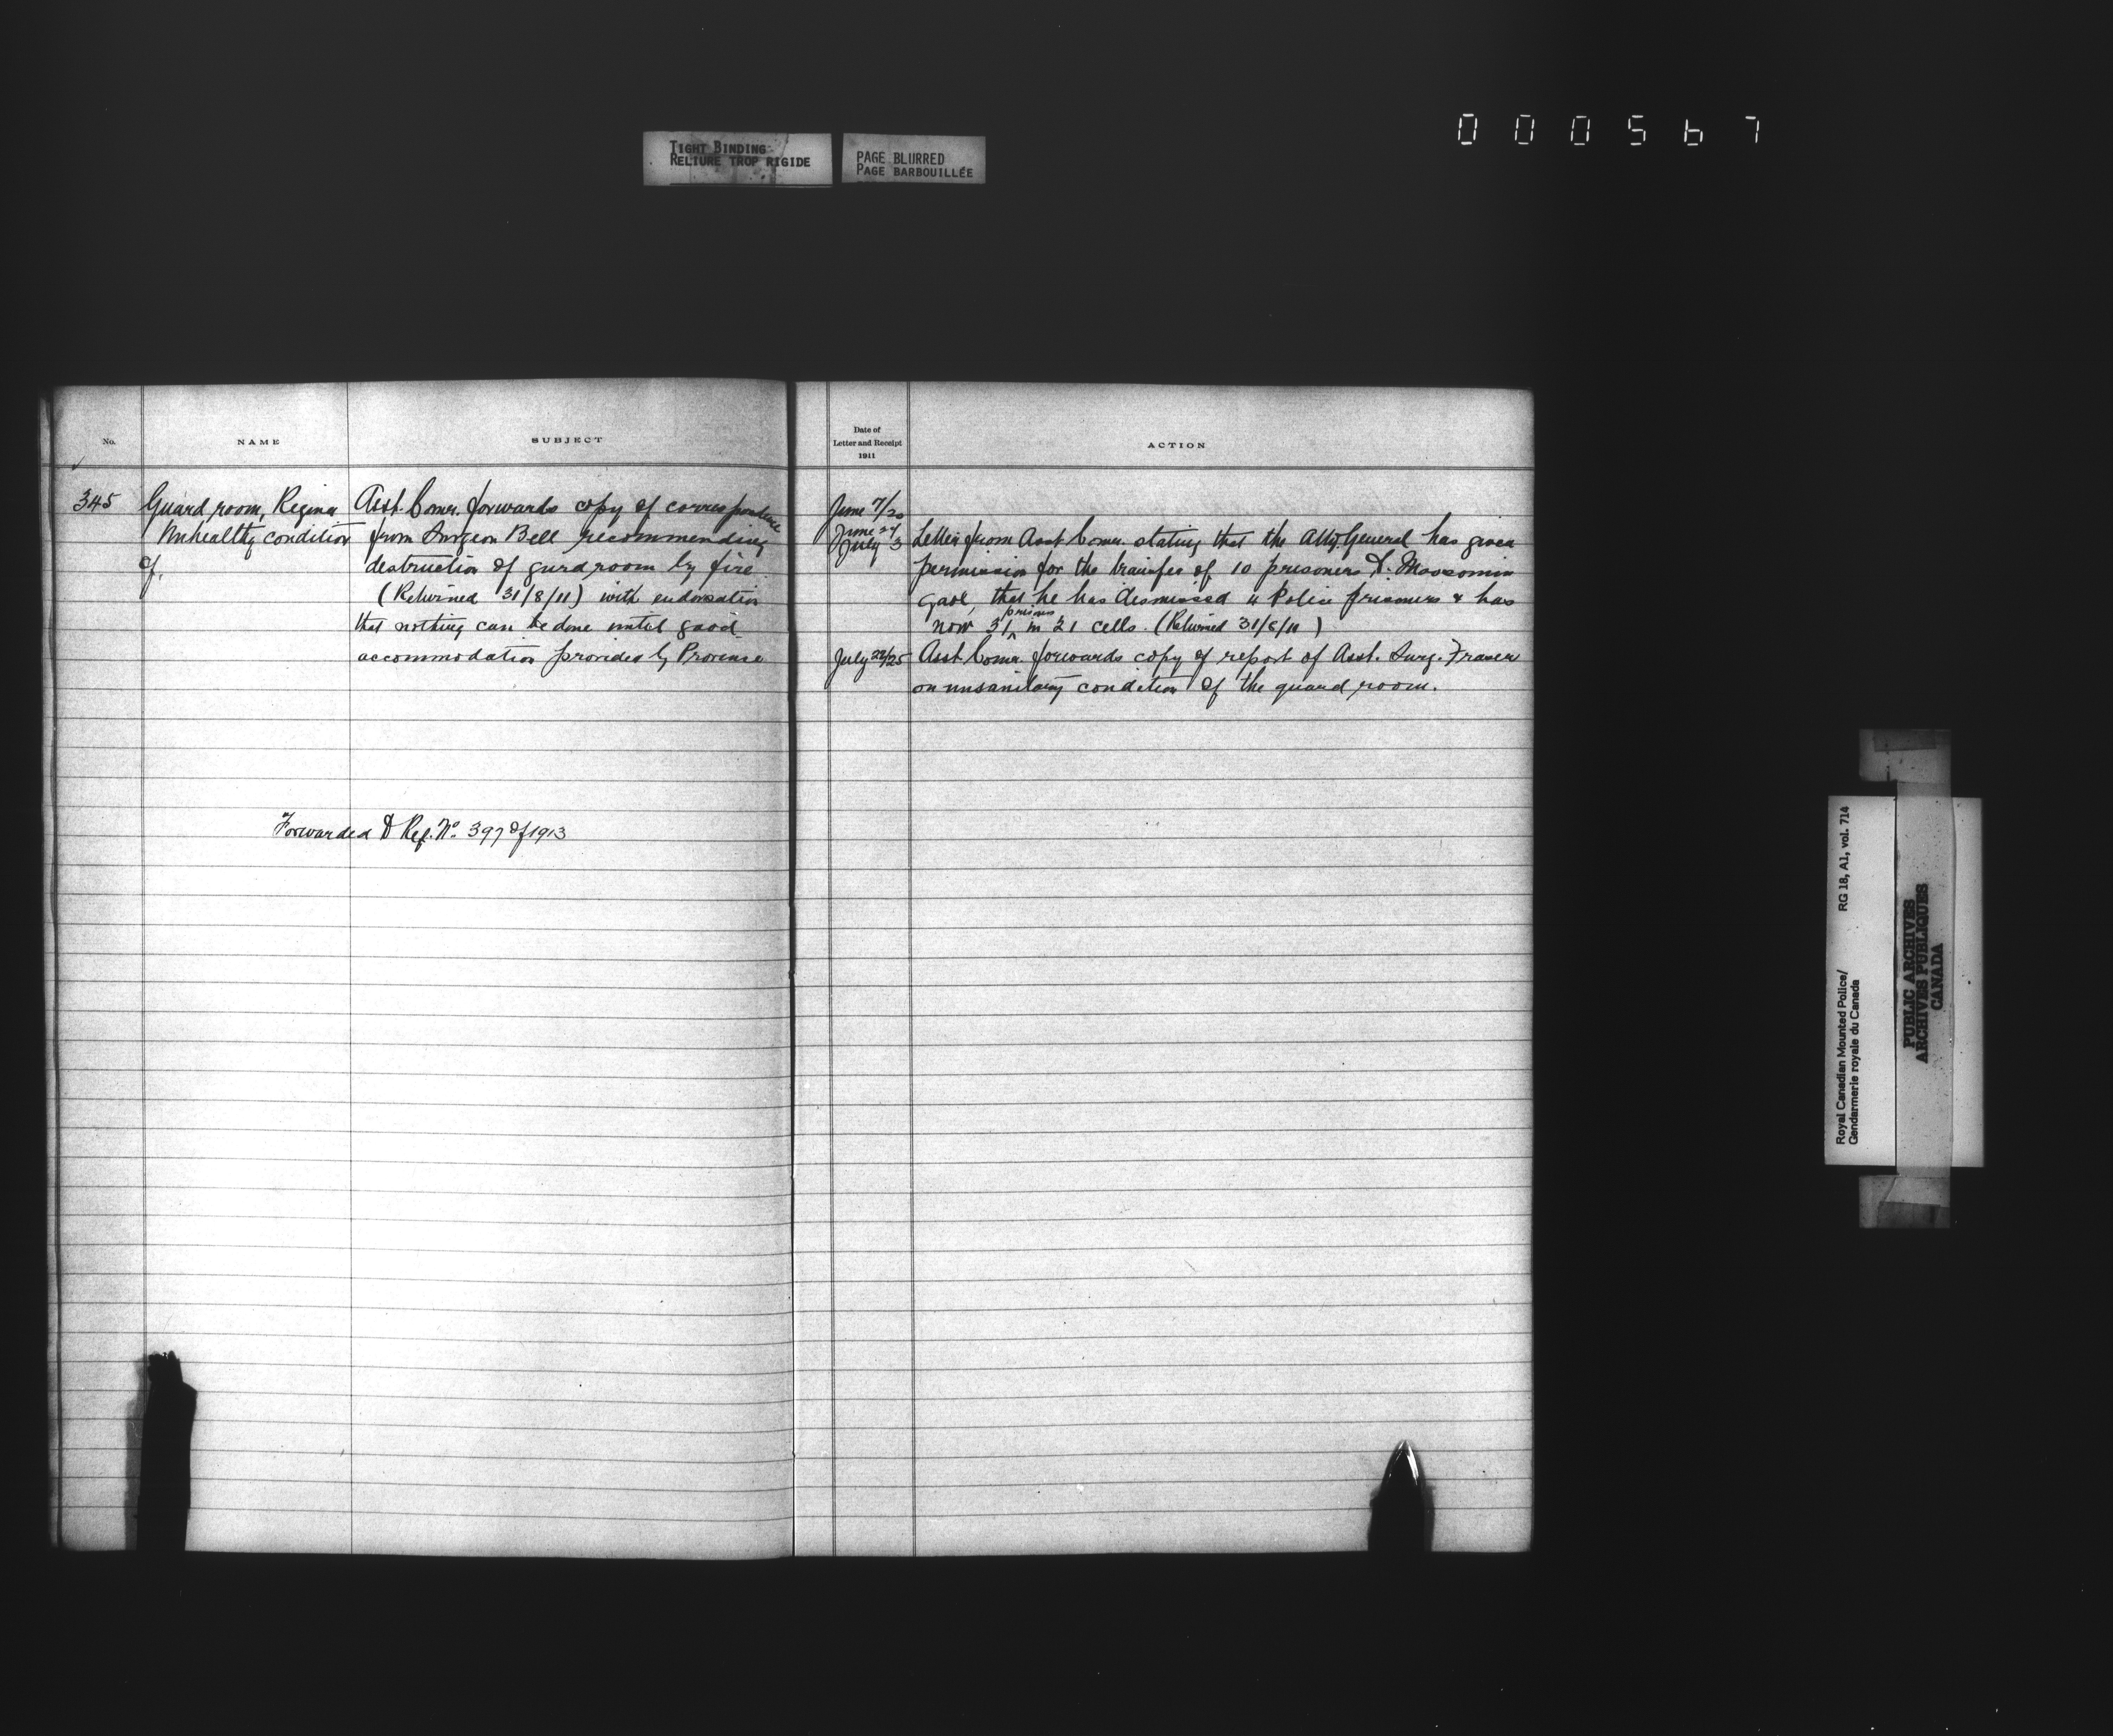 TIGHT BINDING
RELIURE TROP RIGIDE
PAGE BLURRED
PAGE BARBOUILLÉE
000567
No.
NAME
SUBJECT
345
Guard room, Regina
Unhealthy condition
of.
Asst. Comr. forwards copy of correspondence
from Surgeon Bell recommending
destruction of gurd room by fire
(Returned 31/8/11) with endorsation
that nothing can be done until good
accommodation provided by Province
Forwarded to Ref. No. 397 of 1913
Date of
Letter and Receipt
1911
ACTION
June 7/20
June 27
July 3
Letter from Asst Comr. stating that the Atty. General has given
permission for the transfer of 10 prisoners to Moosomin
gaol, that he has dismissed 4 Police prisoners & has
now 31 prisons in 21 cells. (Returned 31/8/11)
July 22/25
Asst. Comr. forwards copy of report of Asst. Surg. Fraser
on unsanitary condition of the guard room.
Royal Canadian Mounted Police/
Gendarmerie royale du Canada
RG 18, A1, vol. 714
PUBLIC ARCHIVES
ARCHIVES PUBLIQUES
CANADA